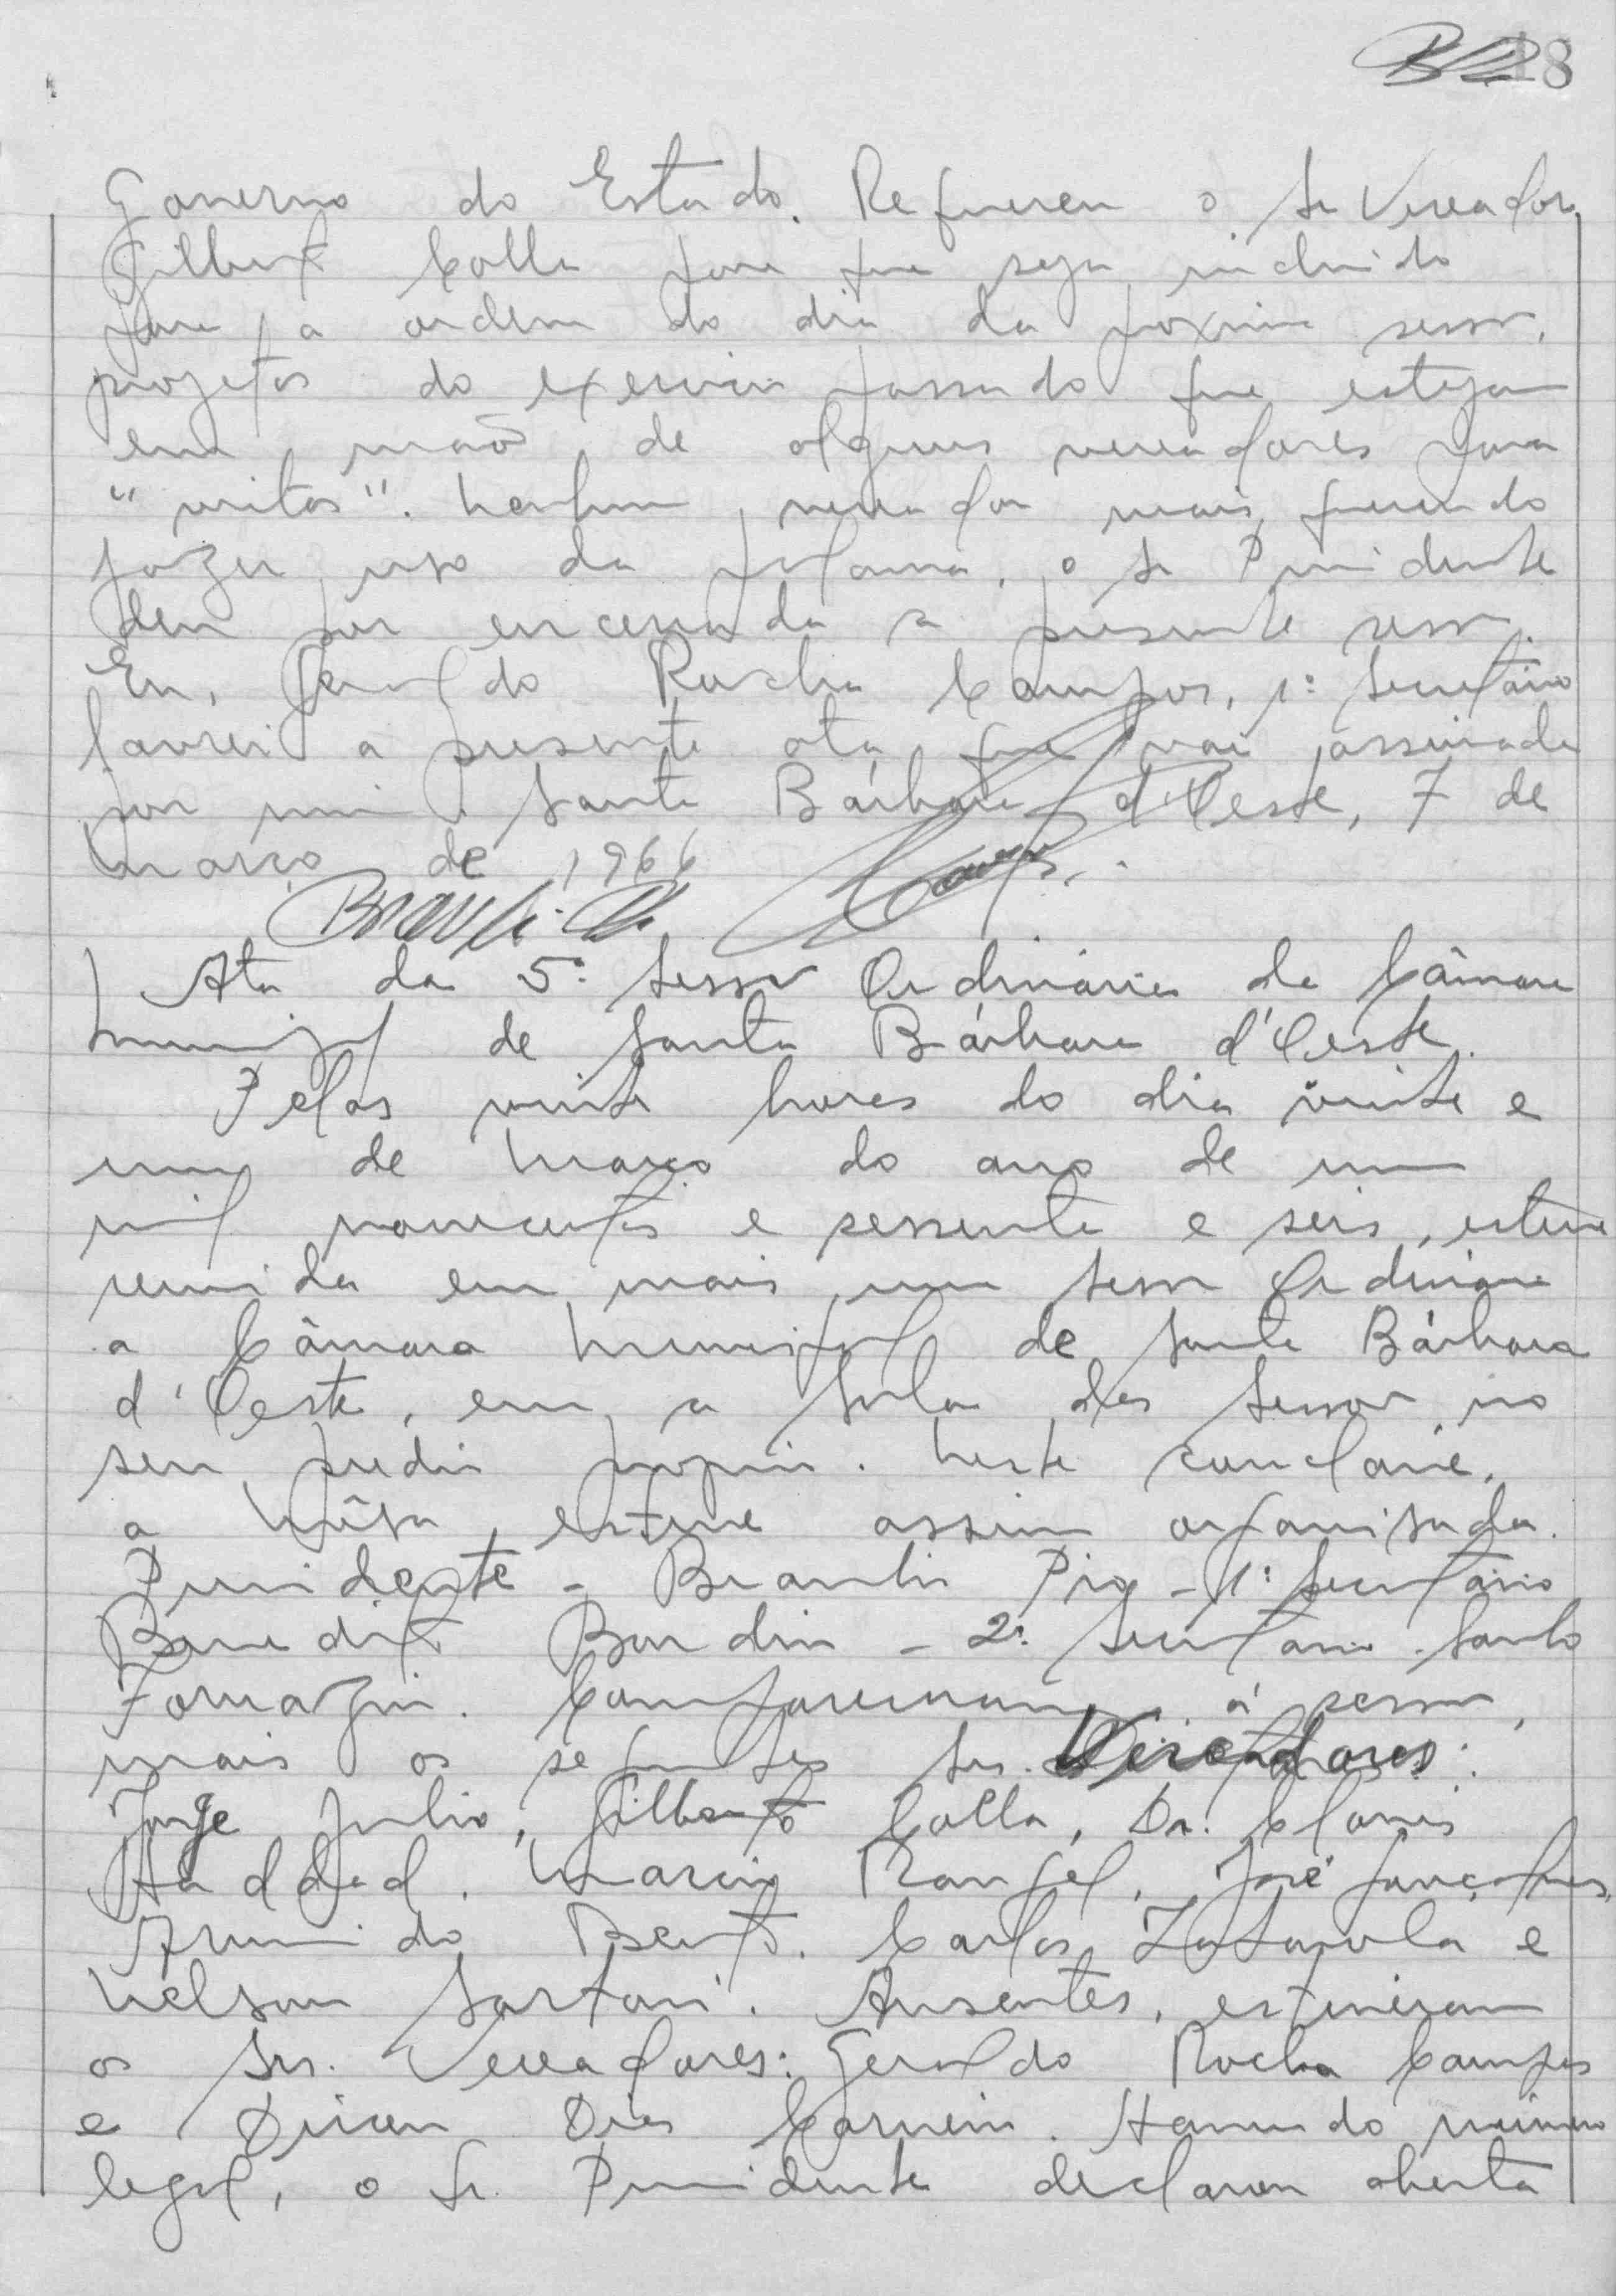 18
Governo do Estado. Requereu o Sr Vereador
Gilberto Colla para que seja incluido
para a ordem do dia da proxima sessão,
projetos do exercicio passado que estejam
em mão de alguns vereadores para
"vistas". Nenhum vereador mais querendo
fazer uso da palavra, o Sr Presidente
deu por encerrada a presente sessão.
Eu, Geraldo Rocha Campos, 1º Secretário
lavrei a presente ata que vai assinada
por mim. Santa Bárbara d'Oeste, 7 de
março de 1966
Ata da 5ª Sessão Ordinária da Câmara
Municipal de Santa Bárbara d'Oeste.
Pelas vinte horas do dia vinte e
um de Março do ano de um
mil novecentos e sessenta e seis, esteve
reunida em mais uma Sessão Ordinária
a Câmara Municipal de Santa Bárbara
d'Oeste, em a Sala das Sessões, no
seu predio proprio. Neste conclave,
a Mêsa esteve assim organisada.
Presidente - Braulio Pio - 1º Secretário
Benedito Bordin - 2º Secretario - Santo
Fornazin. Compareceram à sessão,
mais os seguintes Srs. Vereadores:
Jorge Julio, Gilberto Colla, Dr. Clovis
Haddad, Marcio Rangel, José Gonçalves,
Armindo Bento, Carlos Zatarola e
Nelson Sartori. Ausentes, estiveram
os Srs. Vereadores: Geraldo Rocha Campos
e Dirceu Dias Carneiro. Havendo número
legal, o Sr. Presidente declarou aberta